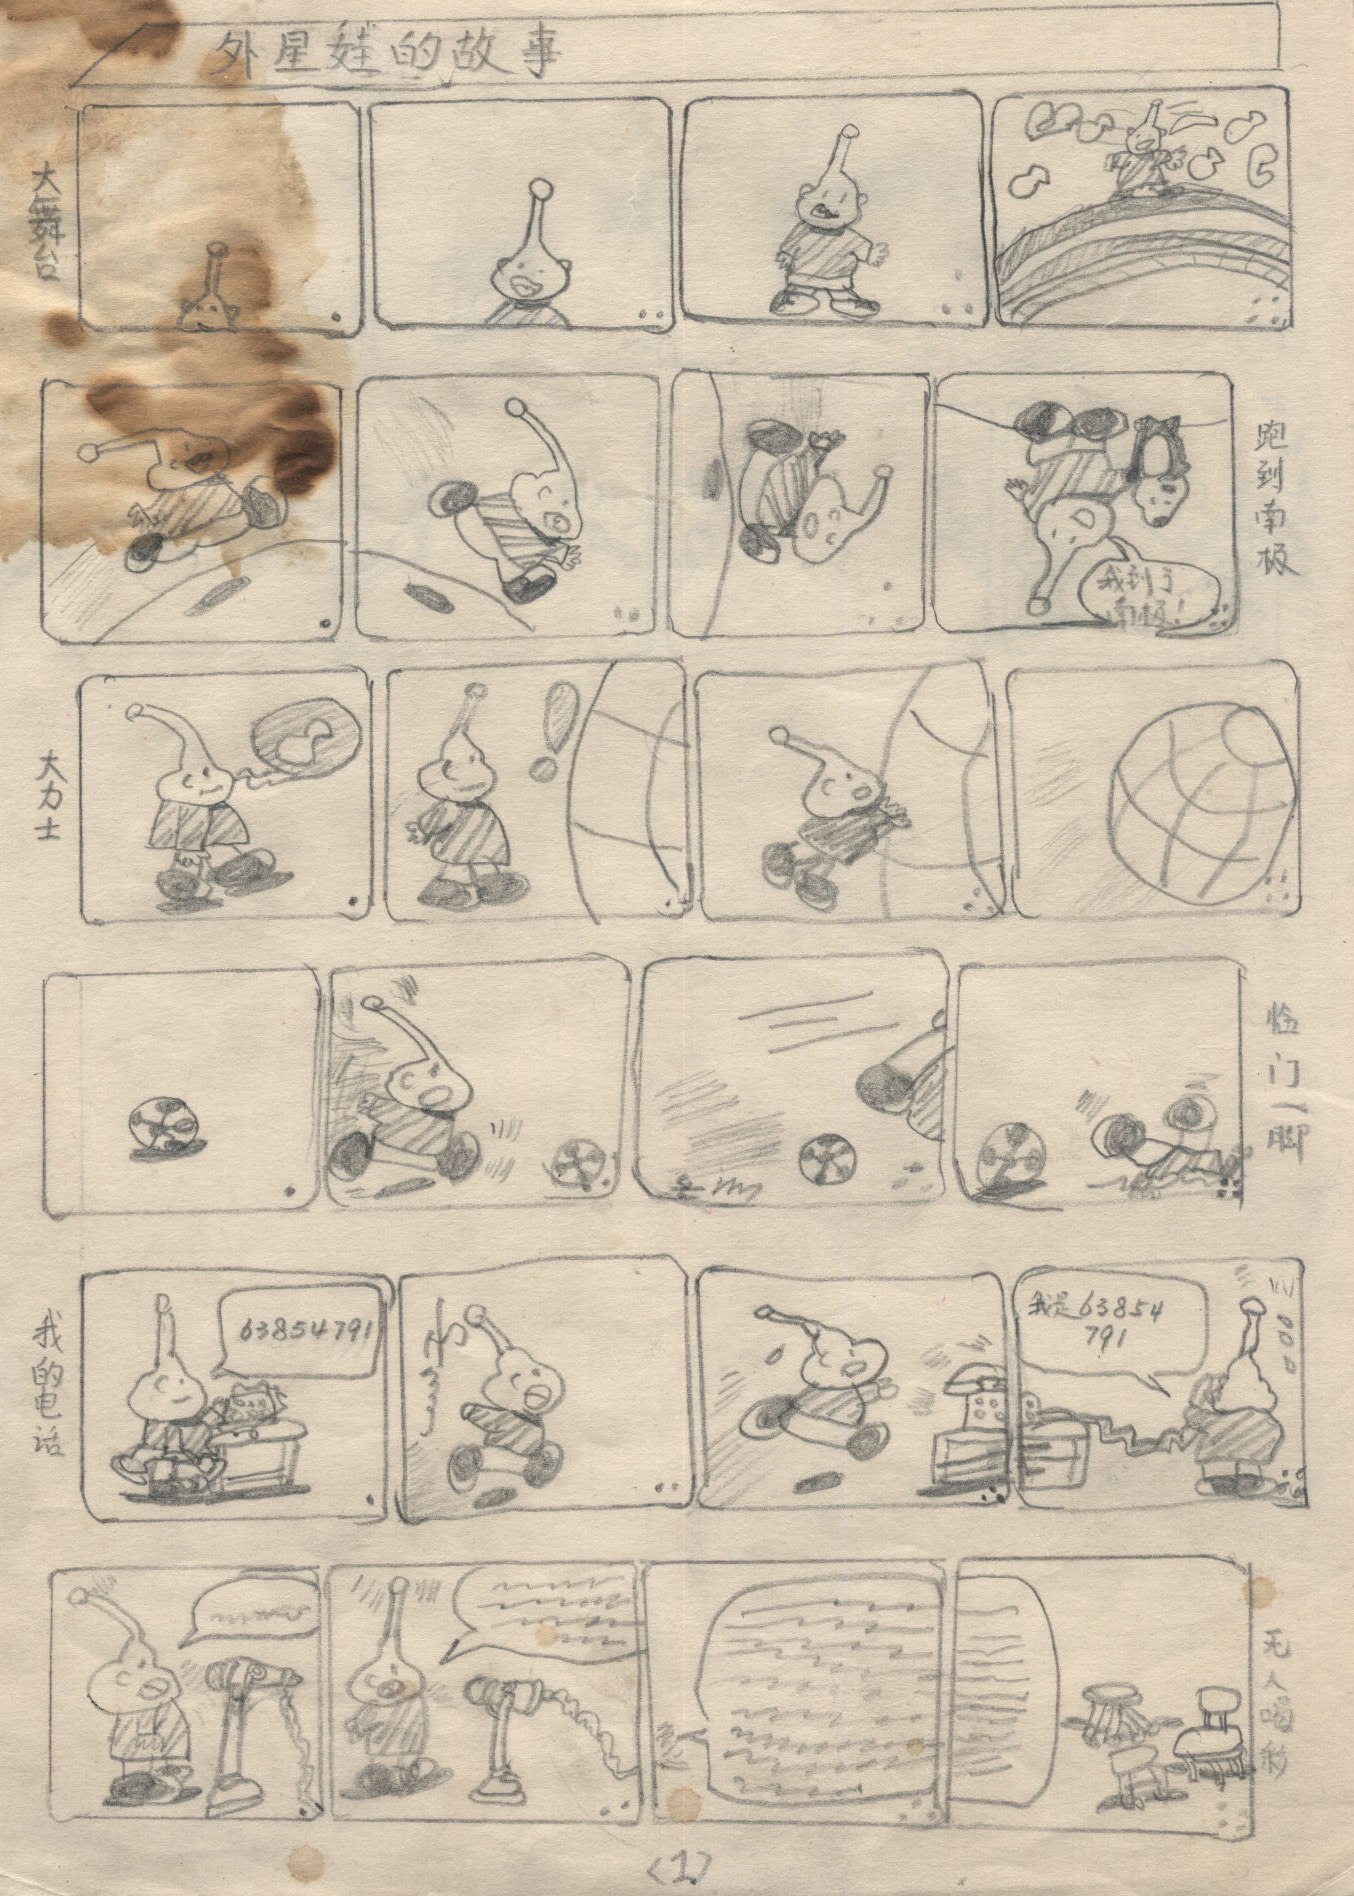 外星娃的故事
大舞台
跑到南极
我到了
南极!
大力士
临门一脚
我的电话
63854791
我是63854
791
无人喝彩
<1>